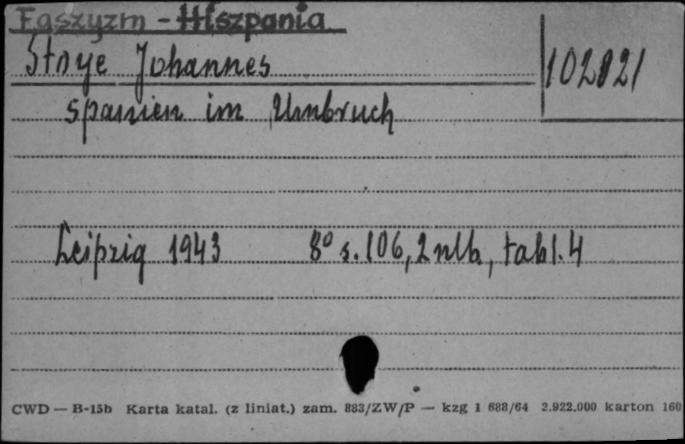 Faszyzm - Hiszpania
Stoye Johannes
102821
Spanien im Umbruch
Leipzig 1943 8° s. 106, 2 nlb, tabl. 4
CWD — B-15b Karta katal. (z liniat.) zam. 883/ZW/P — kzg 1 688/64 2.922.000 karton 160